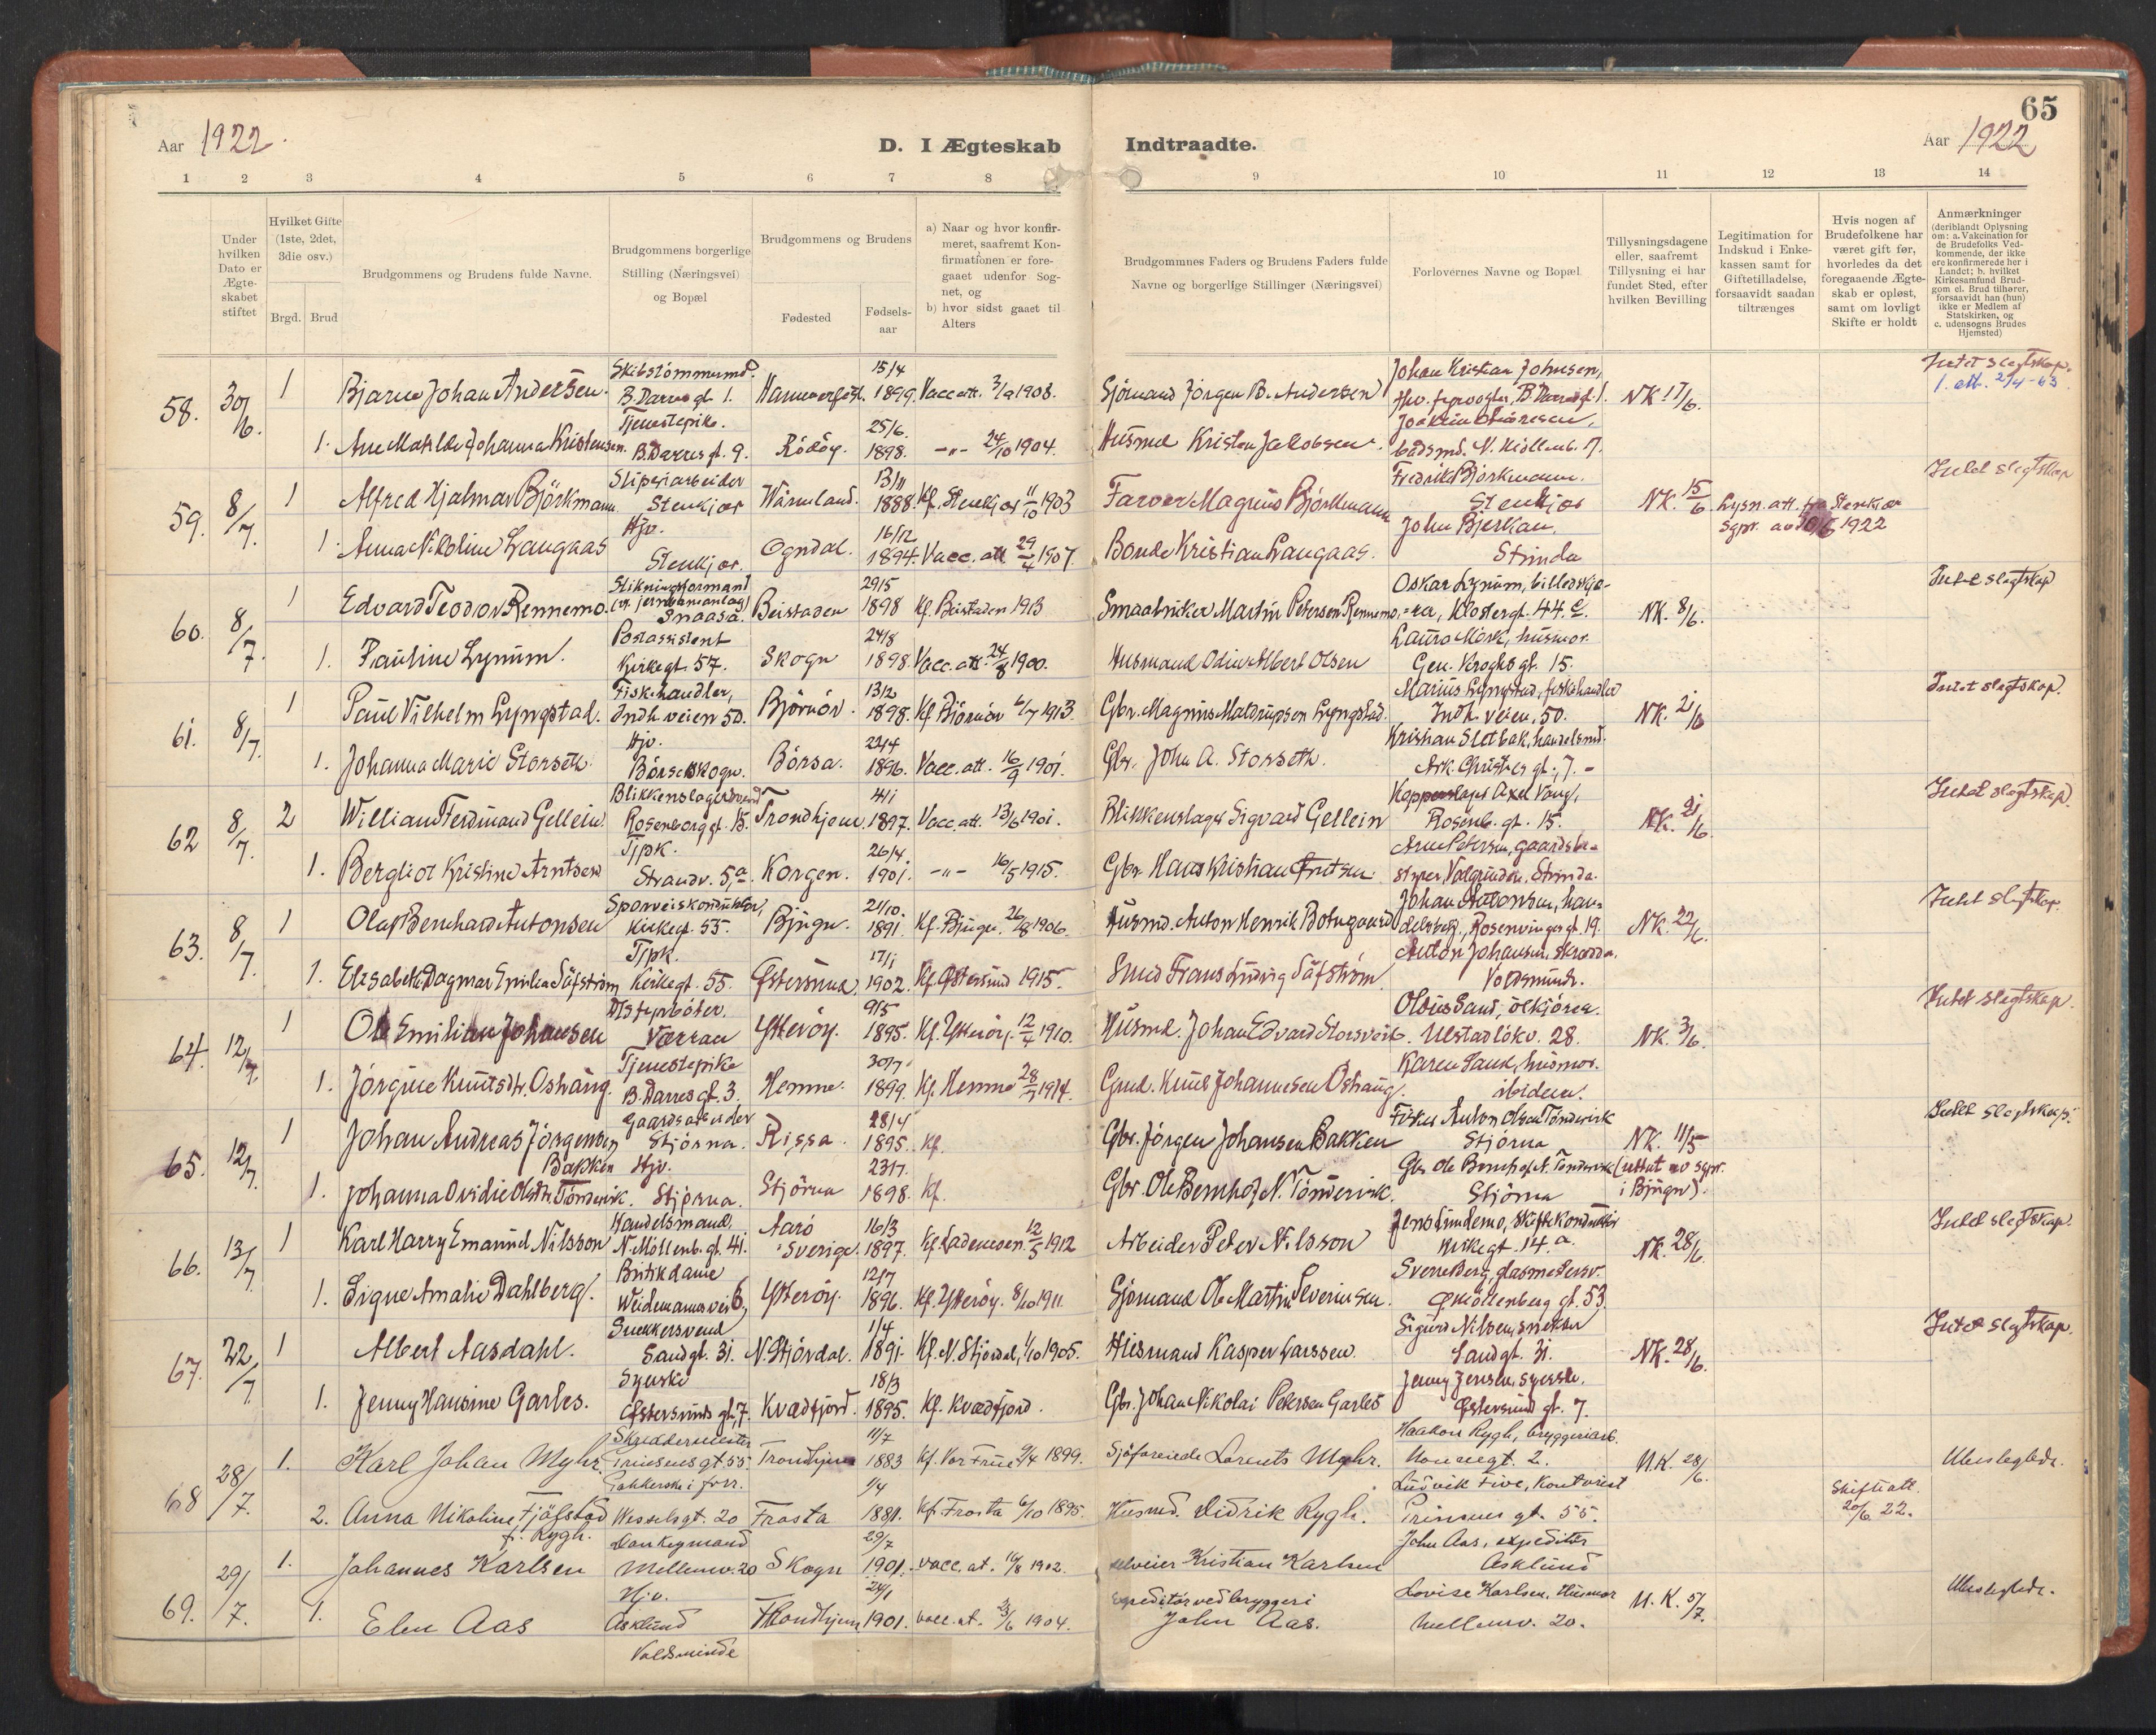 65
Aar 1922. D. I Ægteskab Indtraadte. Aar 1922
1 2 3 4 5 6 7 8 9 10 11 12 13 14
Under hvilken Dato er Ægteskabet stiftet
Hvilket Gifte (1ste, 2det, 3die osv.)
Brgd. Brud
Brudgommens og Brudens fulde Navne.
Brudgommens borgerlige Stilling (Næringsvei) og Bopæl
Brudgommens og Brudens
Fødested Fødselsaar
a) Naar og hvor konfirmeret, saafremt Konfirmationen er foregaaet udenfor Sognet, og
b) hvor sidst gaaet til Alters
Brudgommnes Faders og Brudens Faders fulde Navne og borgerlige Stillinger (Næringsvei)
Forlovernes Navne og Bopæl
Tillysningsdagene eller, saafremt Tillysning ei har fundet Sted, efter hvilken Bevilling
Legitimation for Indskud i Enkekassen samt for Giftetilladelse, forsaavidt saadan tiltrænges
Hvis nogen af Brudefolkene har været gift før, hvorledes da det foregaaende Ægteskab er opløst, samt om lovligt Skifte er holdt
Anmærkninger (deriblandt Oplysning om: a. Vakcination for de Brudefolks Vedkommende, der ikke ere konfirmerede her i Landet; b. hvilket Kirkesamfund Brudgom el. Brud tilhører, forsaavidt han (hun) ikke er Medlem af Statskirken, og c. udensogns Brudes Hjemsted)
58. 30/6. 1 Bjarne Johan Andersen. Skibstømmermd. B. Darres gt. 1. Hammerfest. 15/4 1899. Vacc. att. 3/9 1908. Sjømand Jørgen B. Andersen Johan Kristian Johnsen, B. Darresgt. 1. NK 17/6. Intet slegtskap.
1. att. 2/4-63
1. Ane Matilde Johanna Kristensen. Tjenestepike. B. Darres gt. 9. Rödöy. 25/6. 1898. -"- 24/10 1904. Husmd Kristen Jakobsen.
59. 8/7. 1 Alfred Hjalmar Björkmann Sliperiarbeider Stenkjær Wärmland. 13/11 1888. Kf. Stenkjær 11/10 1903 Farver Magnus Björkmann Fredrik Björkmann. Stenkjær NK. 15/6 Lysn. att. fra Stenkjær Sgpr. av 1922 Intet slegtskap
1. Anna Nikoline Langaas Hjv. Stenkjær. Ogndal. 16/12 1894. Vacc. att 29/4 1907. Bonde Kristian Langaas. John Bjerkan. Strinda
60. 8/7. 1 Edvard Teodor Rennemo. Snaasa. Beistaden 29/5 1898 Kf. Beistaden 1913 Smaabruker Martin Petersen Rennemo. Oskar Lynum, billedskjærer, Klostergt. 44.c. NK. 8/6. Intet slegtskap
1. Pauline Lynum. Postassistent Kirkegt. 57. Skogn 24/8 1898. Vacc. att. 24/8 1900. Husmand Odin Albert Olsen Laura Mörk, husmor. Gen. Kroghs gt. 15.
61. 8/7. 1 Paul Vilhelm Lyngstad. Fiskehandler, Indh. veien 50. Björnör. 13/2 1898. Kf Björnör 6/7 1913. Gbr. Magnus Lyngstad. Marius Lyngstad, fiskehandler Indh. veien, 50. NK. 21/6 Intet slegtskap.
1. Johanna Marie Storseth. Hjv. Börseskogn. Börsa. 22/4 1896. Vacc. att. 16/9 1901. Gbr. John A. Storseth. Kristian Sletbak, handelsmd. Ark. Christies gt. 7.
62 8/7. 2 William Ferdinand Gellein Blikkenslagersvend Rosenborg gt. 15. Trondhjem 4/1 1897. Vacc. att. 13/6 1901. Blikkenslager Sigvard Gellein Axel Vang, Rosenb. gt. 15. NK. 21/6. Intet slegtskap.
1. Bergliot Kristine Arntsen Tjpk. Strandv. 5.a. Korgen. 26/4. 1901. -"- 16/5 1915. Gbr. Hans Kristian Arne Petersen, gaardsbestyrer, Valgrinden, Strinda.
63. 8/7. 1 Olaf Bernhard Antonsen Sporveiskonduktør, Kirkegt. 55. Bjugn. 21/10. 1891. Kf. Bjugn. 26/8 1906. Husmd. Anton Henrik Botngaard Rosenvinges gt. 19. NK. 22/6. Intet slegtskap.
1. Elisabeth Dagmar Emilia Säfström Tjpk. Kirkegt. 55. Østersund. 17/1 1902. Kf. Østersund 1915. Smed Frans Ludvig Säfström. Anton Johansen, skrædder. Voldsminde.
64. 12/7. 1 Ole Emilian Johansen Værran Ytterøy. 9/5 1895. Kf. Ytterøy. 12/4 1910. Husmd. Johan Edvard Storsveet. Olaus Sand, ölkjörer. Ulstadlökv. 28. NK. 3/6. Intet slegtskap.
1. Jörgine Knutsdtr. Oshaug. Tjenestepike B. Darres gt. 3. Hemne. 30/7. 1899. Kf. Hemne 28/7 1914. Gmd. Knut Johannesen Oshaug. Karen Sand, husmor. ibidem.
65. 12/7. 1 Johan Andreas Jörgensen Bakken Gaardsarbeider Stjörna. Rissa. 28/4 1895. Kf. Gbr. Jörgen Johansen Bakken Fisker Anton Olsen Töndervik Stjörna NK. 11/5 (uttat av sgpr. i Bjugn). Intet slegtskap.
1. Johanna Ovidie Olsdtr. Töndervik. Hjv. Stjörna. Stjörna 23/7. 1898. Kf. Gbr. Ole Bernhof N. Töndervik. Gbr. Ole Bernhof N. Töndervik Stjörna
66. 13/7 1 Karl Harry Emanuel Nilsson Handelsmand, N. Möllenb. gt. 41. Sverige. 16/3 1897. Kf. Lademoen. 12/5 1912 Arbeider Peter Nilsson Jens Lundemo, Kirkegt. 14.a. NK. 28/6. Intet slegtskap.
1. Signe Amalie Dahlberg. Butikdame Weidemannsvei 6, Ytterøy. 12/7 1896. Kf. Ytterøy. 8/10 1911. Sjömand Ole Martin Severinsen. Sverre Berg, glasmestersv. Ø. Möllenberg gt. 53.
67. 22/7 1 Albert Aasdahl. Snekkersvend Sandgt. 31. N. Stjördal. 1/4 1891. Kf. N. Stjördal, 1/10 1905. Husmand Kasper Larssen. Sigurd Nilsen, snekker Sandgt. 31. NK. 28/6. Intet slegtskap.
1. Jenny Hansine Garles. Syerske Østersunds gt. 7. Kvædfjord. 18/3 1895. Kf. Kvædfjord. Gbr. Johan Nikolai Petersen Garles Jenny Jensen, syerske. Østersund gt. 7.
68 28/7. 1. Karl Johan Myhr. Skræddermester Prinsensgt 55. Trondhjem 11/7 1883 Kf. Vor Frue 9/4 1899. Sjöfarende Lorents Myhr. Haakon Rygh, bryggeriarb. Nonnegt. 2. N.K. 28/6. Ubeslegtede.
2. Anna Nikoline Fjöfstad f. Rygh. Wesselsgt. 20 Frosta 1/4 1881. Kf. Frosta 6/10 1895. Husmd. Didrik Rygh. Ludvik Five, Kontorist Prinsens gt. 55. Skifteatt. 20/6 22.
69. 29/7. 1. Johannes Karlsen Mellemv. 20 Skogn 29/7 1901. vacc. at. 16/8 1902. selveier Kristian Karlsen John Aas, expeditør Asklund N.K. 5/7. Ubeslegtede.
1. Elen Aas Hjv. Asklund Voldsminde Trondhjem 24/1 1901. vacc. at. 23/6 1904. Expeditør ved bryggeri John Aas. Lovise Karlsen, Husmor Mellemv. 20.